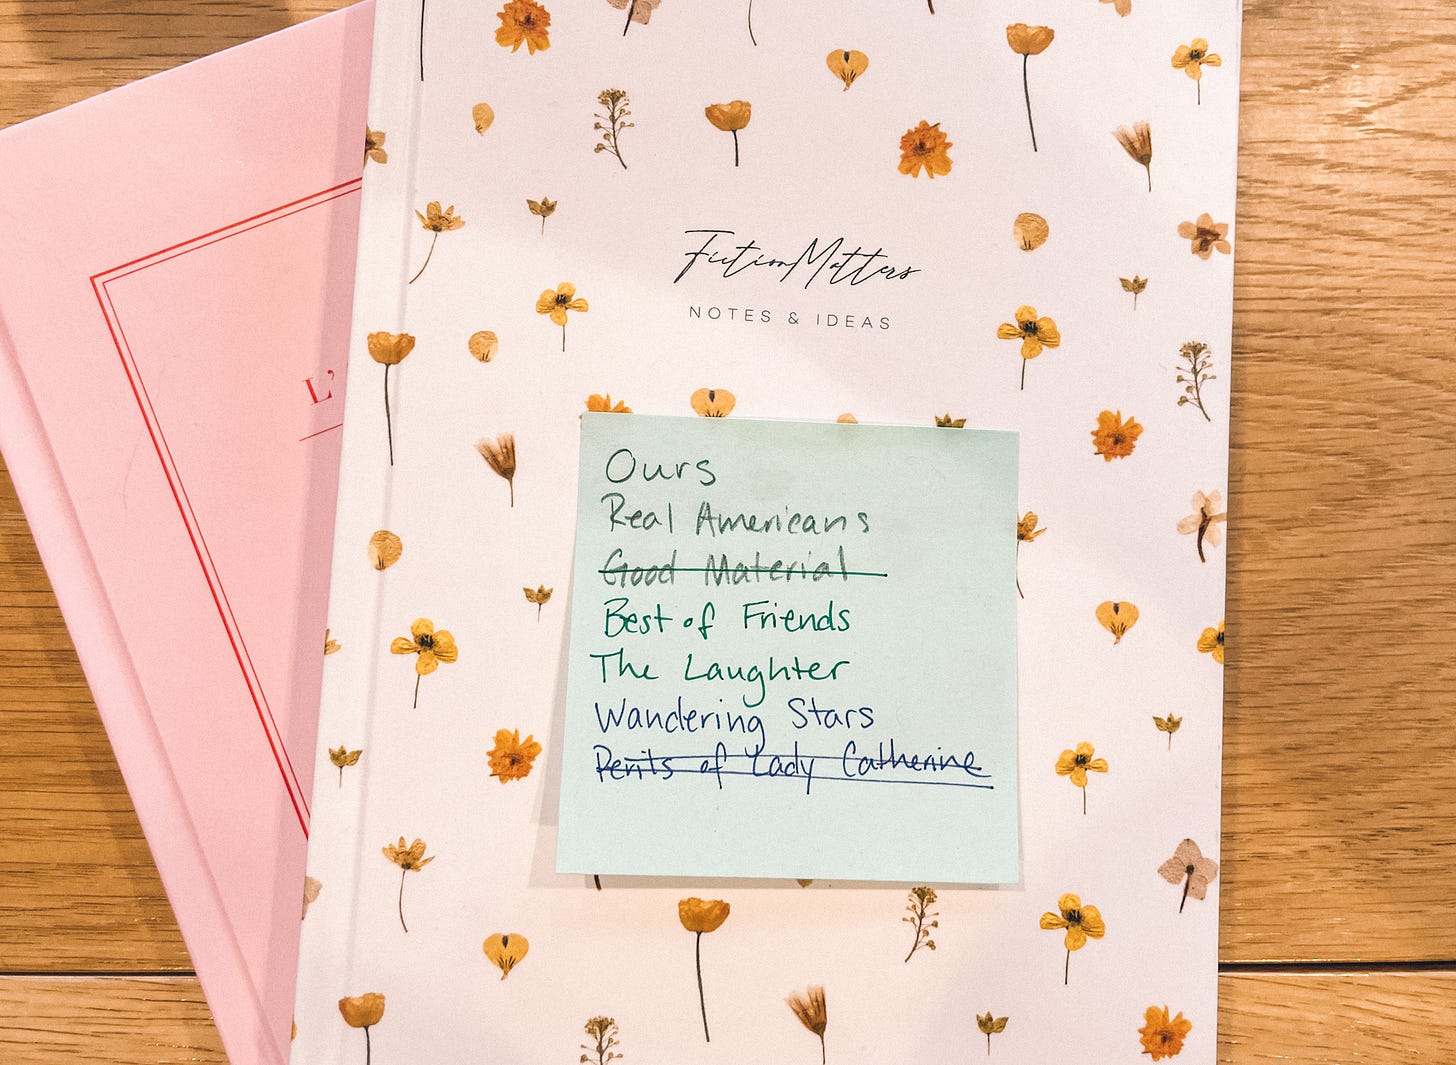 L'
FictionMatters
NOTES & IDEAS
Ours
Real Americans
Good Material
Best of Friends
The Laughter
Wandering Stars
Perils of Lady Catherine